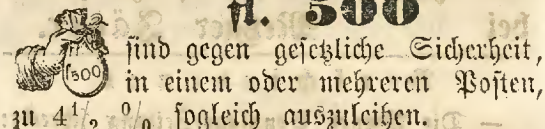 fl. 500
f500
sind gegen gesetzliche Sicherheit,
in einem oder mehreren Posten,
zu 4 1/2 % sogleich auszuleihen.